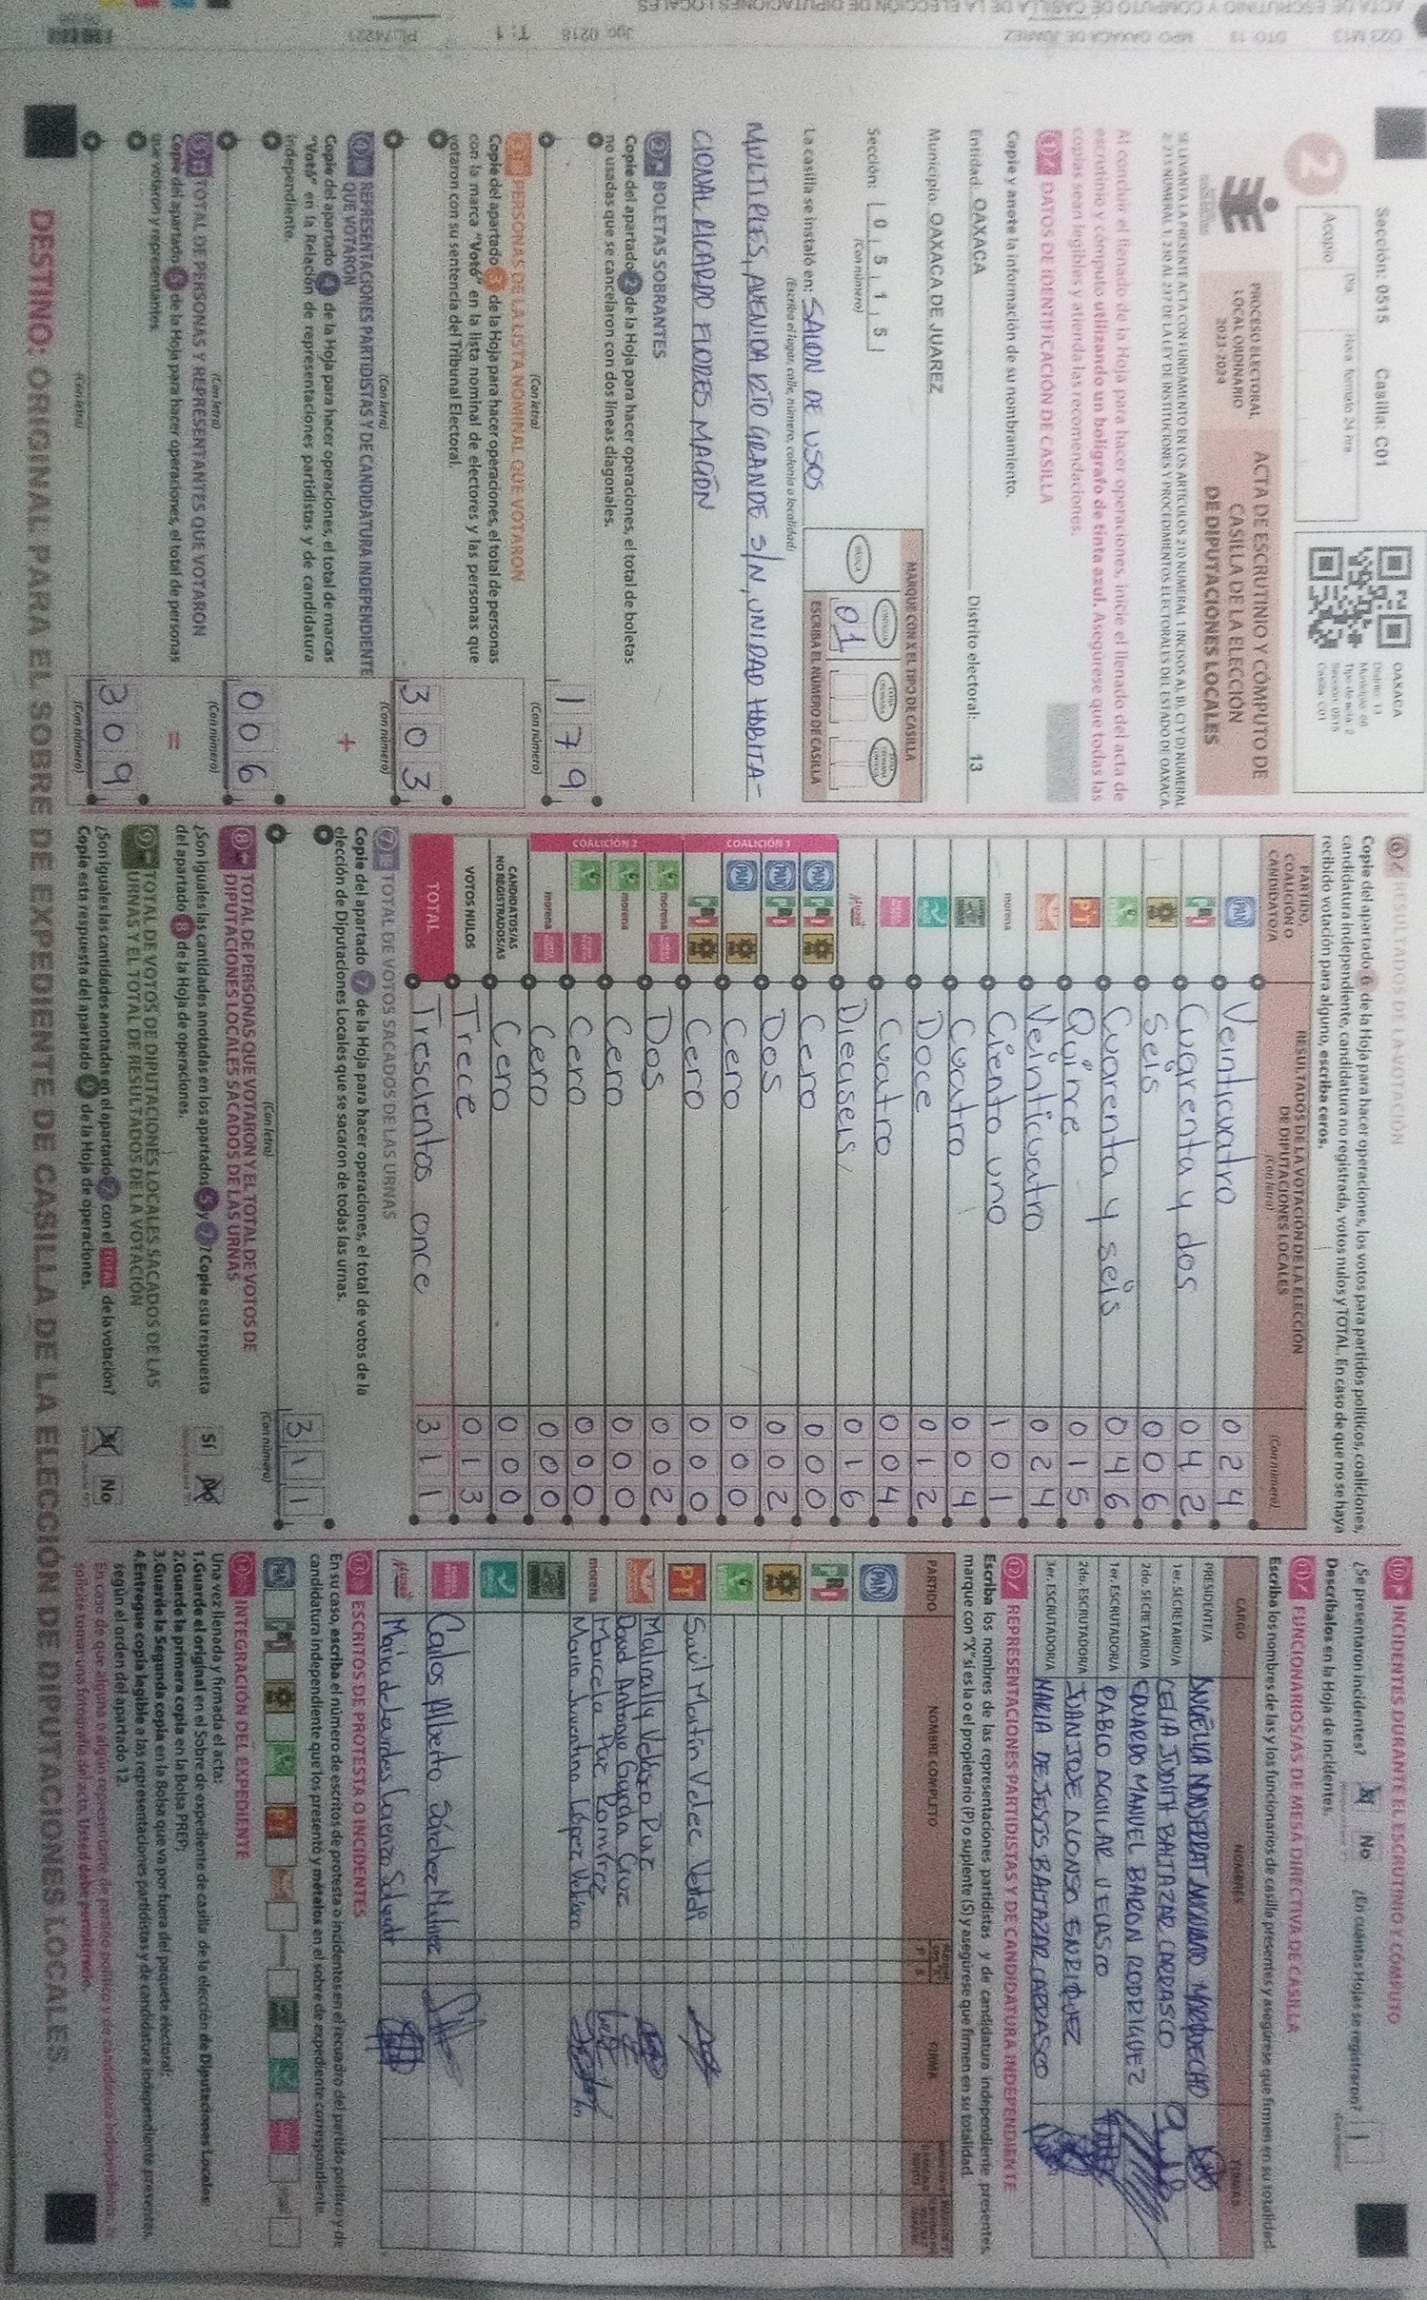 Sección: 0515 Casilla: C01
2
Acopio
Día
Hora formato 24 hrs
OAXACA
Distrito: 13
Tipo de acta 2
Sección: 0515
Casilla: C01
PROCESO ELECTORAL
LOCAL ORDINARIO
2023-2024
ACTA DE ESCRUTINIO Y CÓMPUTO DE
CASILLA DE LA ELECCIÓN
DE DIPUTACIONES LOCALES
Al concluir el llenado de la Hoja para hacer operaciones, inicie el llenado del acta de
escrutinio y cómputo utilizando un bolígrafo de tinta azul. Asegúrese que todas las
copias sean legibles y atienda las recomendaciones.
1 DATOS DE IDENTIFICACIÓN DE CASILLA
Copie y anote la información de su nombramiento.
Entidad: OAXACA Distrito electoral: 13
Municipio: OAXACA DE JUAREZ
Sección: 0 5 1 5
(Con número)
MARQUE CON X EL TIPO DE CASILLA
ESCRIBA EL NÚMERO DE CASILLA
01
La casilla se instaló en: SALON DE USOS
(Escriba el lugar, calle, número, colonia o localidad)
MULTIPLES, AVENIDA RÍO GRANDE S/N, UNIDAD HABITA-
CIONAL RICARDO FLORES MAGÓN
2 BOLETAS SOBRANTES
Copie del apartado 2 de la Hoja para hacer operaciones, el total de boletas
no usadas que se cancelaron con dos líneas diagonales.
179
(Con letra) (Con número)
3 PERSONAS DE LA LISTA NOMINAL QUE VOTARON
Copie del apartado 3 de la Hoja para hacer operaciones, el total de personas
con la marca "Votó" en la lista nominal de electores y las personas que
votaron con su sentencia del Tribunal Electoral.
303
(Con letra) (Con número)
4 REPRESENTACIONES PARTIDISTAS Y DE CANDIDATURA INDEPENDIENTE
QUE VOTARON
Copie del apartado 4 de la Hoja para hacer operaciones, el total de marcas
"Votó" en la Relación de representaciones partidistas y de candidatura
independiente.
+
006
(Con letra) (Con número)
5 TOTAL DE PERSONAS Y REPRESENTANTES QUE VOTARON
Copie del apartado 5 de la Hoja para hacer operaciones, el total de personas
que votaron y representantes.
=
309
(Con letra) (Con número)
6 RESULTADOS DE LA VOTACIÓN
Copie del apartado 6 de la Hoja para hacer operaciones, los votos para partidos políticos, coaliciones,
candidatura independiente, candidatura no registrada, votos nulos y TOTAL. En caso de que no se haya
recibido votación para alguno, escriba ceros.
PARTIDO,
COALICIÓN O
CANDIDATO/A
RESULTADOS DE LA VOTACIÓN DE LA ELECCIÓN
DE DIPUTACIONES LOCALES
(Con letra) (Con número)
PAN Veinticuatro 024
PRI Cuarenta y dos 042
PRD Seis 006
Cuarenta y seis 046
PT Quince 015
Veinticuatro 024
morena Ciento uno 101
Cuatro 004
Doce 012
Cuatro 004
Dieciseis 016
COALICIÓN 1
PAN PRI PRD Cero 000
PAN PRI Dos 002
PAN PRD Cero 000
PRI PRD Cero 000
COALICIÓN 2
morena Dos 002
morena Cero 000
Cero 000
morena Cero 000
CANDIDATOS/AS
NO REGISTRADOS/AS Cero 000
VOTOS NULOS Trece 013
TOTAL Trescientos once 311
7 TOTAL DE VOTOS SACADOS DE LAS URNAS
Copie del apartado 7 de la Hoja para hacer operaciones, el total de votos de la
elección de Diputaciones Locales que se sacaron de todas las urnas.
311
(Con letra) (Con número)
8 TOTAL DE PERSONAS QUE VOTARON Y EL TOTAL DE VOTOS DE
DIPUTACIONES LOCALES SACADOS DE LAS URNAS
¿Son iguales las cantidades anotadas en los apartados 5 y 7? Copie esta respuesta
del apartado 8 de la Hoja de operaciones.
Sí No
9 TOTAL DE VOTOS DE DIPUTACIONES LOCALES SACADOS DE LAS
URNAS Y EL TOTAL DE RESULTADOS DE LA VOTACIÓN
¿Son iguales las cantidades anotadas en el apartado 7 con el TOTAL de la votación?
Copie esta respuesta del apartado 9 de la Hoja de operaciones.
Sí No
10 INCIDENTES DURANTE EL ESCRUTINIO Y CÓMPUTO
¿Se presentaron incidentes? Sí No ¿En cuántas Hojas se registraron? 1
Descríbalos en la Hoja de incidentes.
11 FUNCIONARIOS/AS DE MESA DIRECTIVA DE CASILLA
Escriba los nombres de las y los funcionarios de casilla presentes y asegúrese que firmen en su totalidad.
CARGO NOMBRES FIRMAS
PRESIDENTE/A
1er. SECRETARIO/A CELIA JUDITH BALTAZAR CARRASCO
2do. SECRETARIO/A EDUARDO MANUEL BARON RODRIGUEZ
1er. ESCRUTADOR/A PABLO AGUILAR VELASCO
2do. ESCRUTADOR/A JUAN JOSE ALONSO ENRIQUEZ
3er. ESCRUTADOR/A MARIA DE JESUS BALTAZAR CARRASCO
12 REPRESENTACIONES PARTIDISTAS Y DE CANDIDATURA INDEPENDIENTE
Escriba los nombres de las representaciones partidistas y de candidatura independiente presentes,
marque con "X" si es la o el propietario (P) o suplente (S) y asegúrese que firmen en su totalidad.
PARTIDO NOMBRE COMPLETO FIRMA
PAN
PRI
PRD
PT Saúl Martín Velez
morena Marcela Paz Ramírez
Mario Juventino López
Carlos Alberto Sánchez
Maria de Lourdes
13 ESCRITOS DE PROTESTA O INCIDENTES
En su caso, escriba el número de escritos de protesta o incidentes en el recuadro del partido político y de
candidatura independiente que los presentó y métalos en el sobre de expediente correspondiente.
14 INTEGRACIÓN DEL EXPEDIENTE
Una vez llenada y firmada el acta:
1.Guarde el original en el Sobre de expediente de casilla de la elección de Diputaciones Locales;
2.Guarde la primera copia en la Bolsa PREP;
3.Guarde la Segunda copia en la Bolsa que va por fuera del paquete electoral;
4.Entregue copia legible a las representaciones partidistas y de candidatura independiente presentes,
según el orden del apartado 12.
DESTINO: ORIGINAL PARA EL SOBRE DE EXPEDIENTE DE CASILLA DE LA ELECCIÓN DE DIPUTACIONES LOCALES.